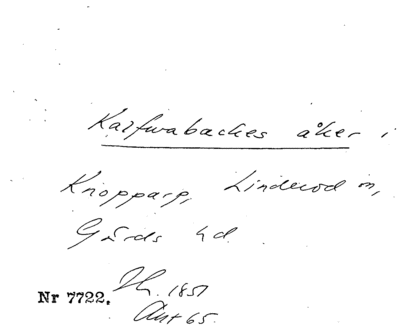 Karfwabackes åker i
Knopparp, Linderöd sn,
Gärds hd.
Nr 7722. 1851
Avt 65.